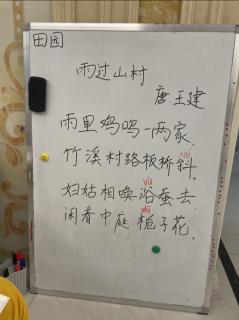 田园
雨过山村
唐.王建
雨里鸡鸣一两家.
竹溪村路板桥斜.
yù
妇姑相唤浴蚕去.
闲着中庭栀子花.